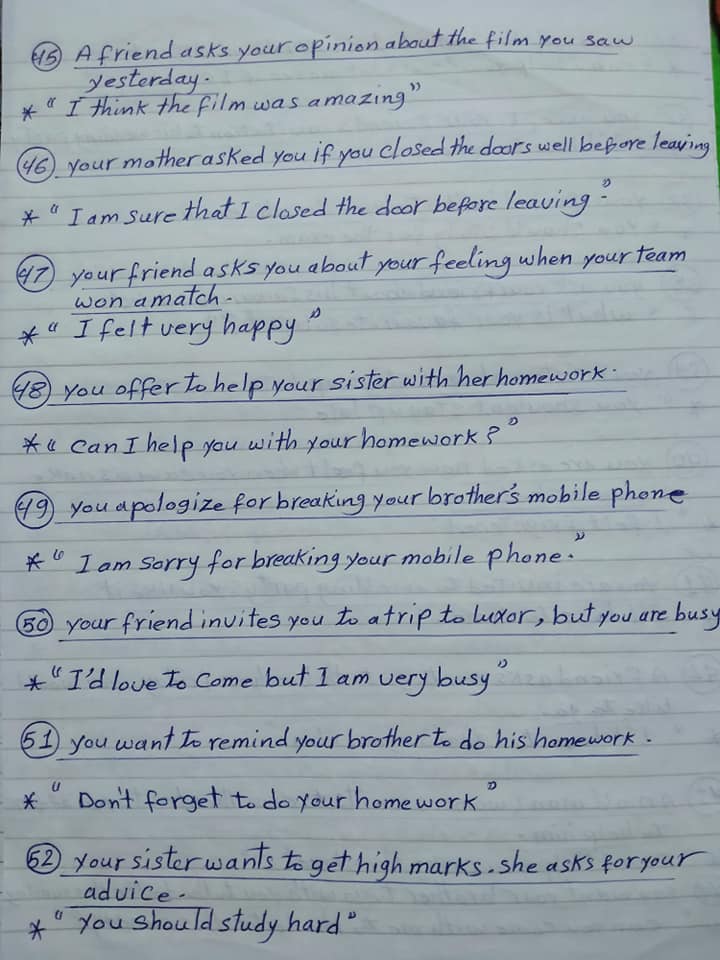 45 A friend asks your opinion about the film you saw
yesterday.
* " I think the film was amazing"
46 your mother asked you if you closed the doors well before leaving
* " I am sure that I closed the door before leaving."
47 your friend asks you about your feeling when your team
won a match.
* " I felt very happy "
48 you offer to help your sister with her homework.
* " Can I help you with your homework? "
49 you apologize for breaking your brother's mobile phone
* " I am sorry for breaking your mobile phone."
50 your friend invites you to a trip to luxor, but you are busy
* " I'd love to come but I am very busy "
51 you want to remind your brother to do his homework.
* " Don't forget to do your homework "
52 your sister wants to get high marks. she asks for your
advice.
* " you should study hard "